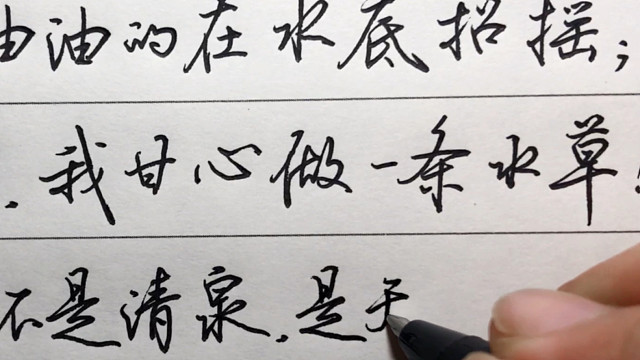 油油的在水底招摇；
，我甘心做一条水草！
不是清泉，是天